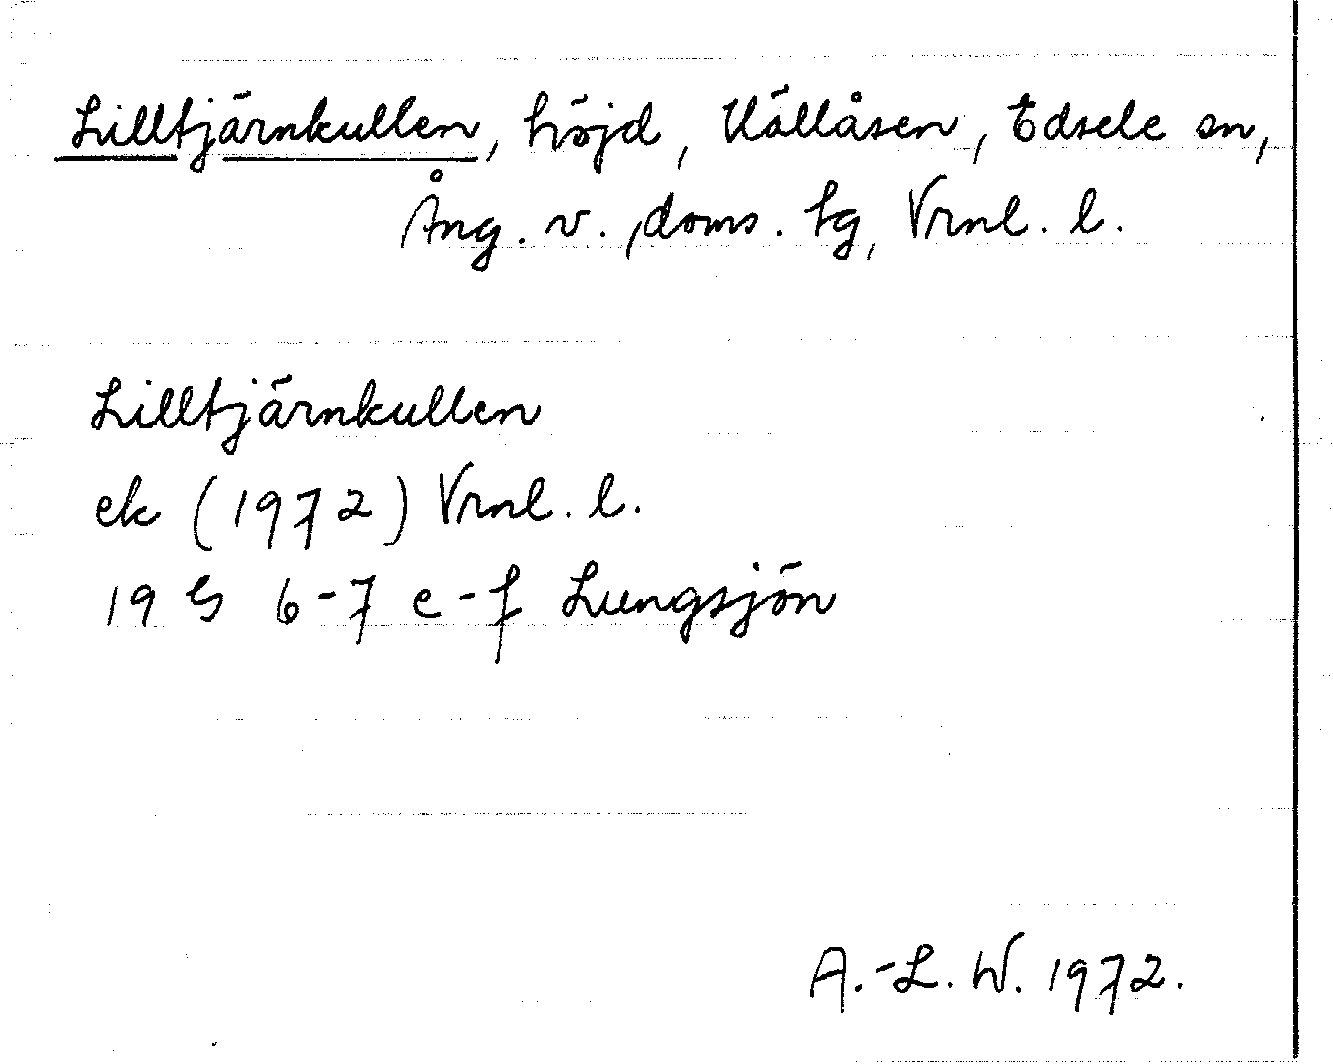 Lilltjärnkullen, höjd, Källåsen, Edsele sn,
Ång. v., doms. tg, Vrnl. l.
Lilltjärnkullen
ek (1972) Vrnl. l.
19 G 6-7 e-f Lungsjön
A.-L. W. 1972.